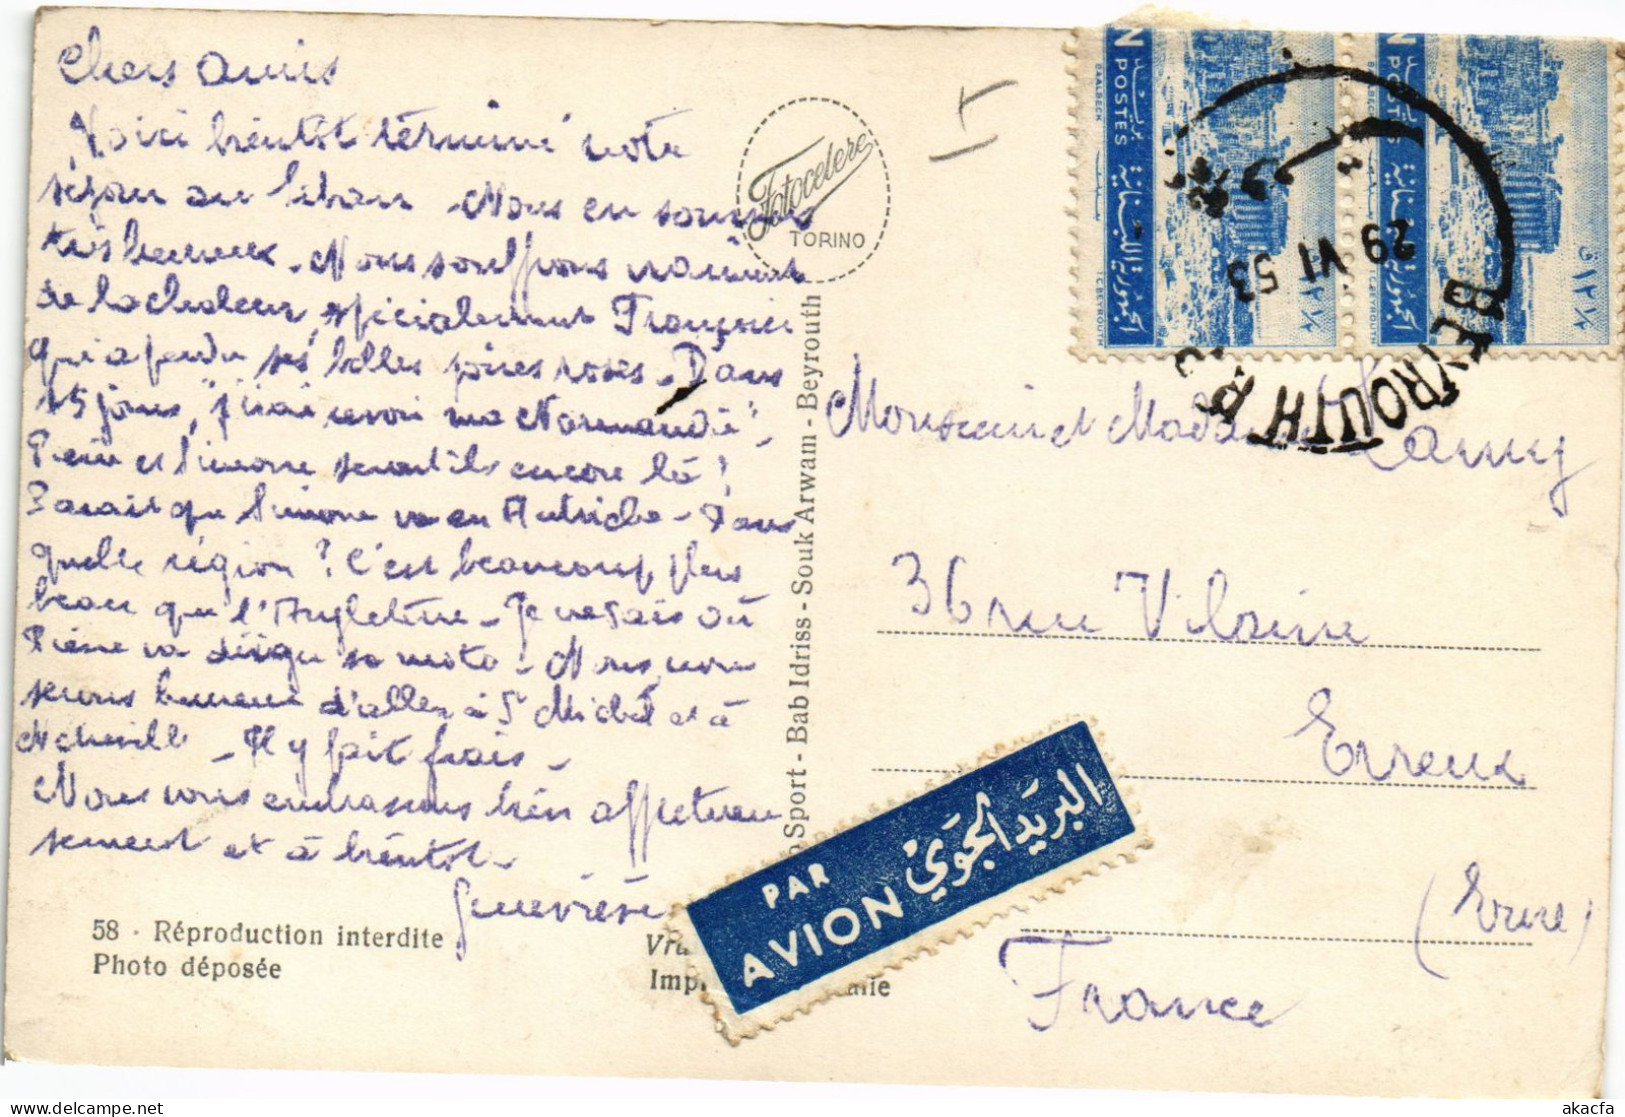 Chers amis
Voici bientôt terminé notre
séjour au Liban Nous en sommes
très heureux. Nous souffrons vraiment
de la chaleur, spécialement Françoise
qui a perdu ses belles joues roses. Dans
15 jours, "j'irai revoir ma Normandie".
Pierre et Simone seront ils encore là ?
Parait que Simone va en Autriche. Dans
quelle région ? C'est beaucoup plus
beau que l'Angleterre. Je ne sais où
Pierre va diriger sa moto. Nous, nous
serons heureux d'aller à St Michel et à
. Il y fait frais.
Nous vous embrassons bien affectueu
sement et à bientôt.
Geneviève
58 - Réproduction interdite
Photo déposée
Fotocelere
TORINO
Sport - Bab Idriss - Souk Arwam - Beyrouth
Vra
Imp alie
PAR
AVION
البريد الجوي
N POSTES
BAALBECK
الجمهورية اللبنانية
I.C. BEYROUTH
N POSTES
الجمهورية اللبنانية
I.C. BEYROUTH
BEYROUTH R.P.
29 VI 53
Monsieur et Madame Lamy
36 rue Vilaine
Evreux
(Eure)
France
akacfa